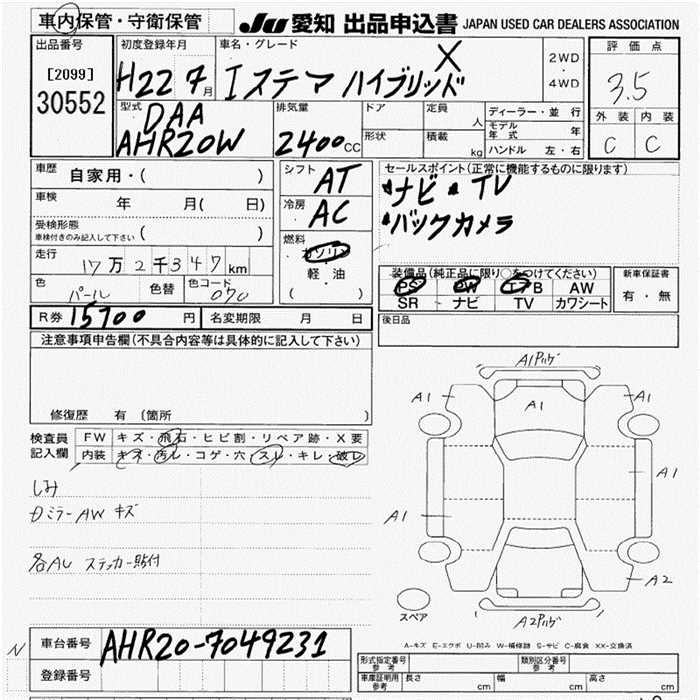 車内保管・守衛保管
JU 愛知 出品申込書 JAPAN USED CAR DEALERS ASSOCIATION
出品番号
[2099]
30552
初度登録年月
H22 7月
車名・グレード
エステマ ハイブリッド X
2WD
・
4WD
評価点
3.5
外装 内装
C C
型式
DAA
AHR20W
排気量
2400cc
ドア 定員 人
形状 積載 kg
ディーラー・並行
モデル年式 年
ハンドル 左・右
車歴
自家用・( )
車検 年 月( 日)
受検形態
車検付きのみ記入して下さい ( )
走行 17万2千347km
色 パール 色替 色コード 070
シフト AT
冷房 AC
燃料
ガソリン
軽・油
( )
セールスポイント(正常に機能するものに限ります)
・ナビ ・TV
・バックカメラ
装備品(純正品に限り○をつけてください)
PS PW エアB AW
SR ナビ TV カワシート
新車保証書
有・無
R券 15700円 名変期限 月 日
後日品
注意事項申告欄(不具合内容等は具体的に記入して下さい)
修復歴 有 (箇所 )
検査員記入欄
FW キズ・飛石・ヒビ割・リペア跡・X要
内装 キズ・汚レ・コゲ・穴・スレ・キレ・破レ
しみ
Dミラー AW キズ
ステッカー貼付
A1
A1
A1
A1
A1
A1
A2
スペア
A-キズ E-エクボ U-凹み W-補修跡 S-サビ C-腐食 XX-交換済
N
車台番号 AHR20-7049231
登録番号
形式指定番号 参考
類別区分番号 参考
車庫証明用 参考 長さ cm 幅 cm 高さ cm